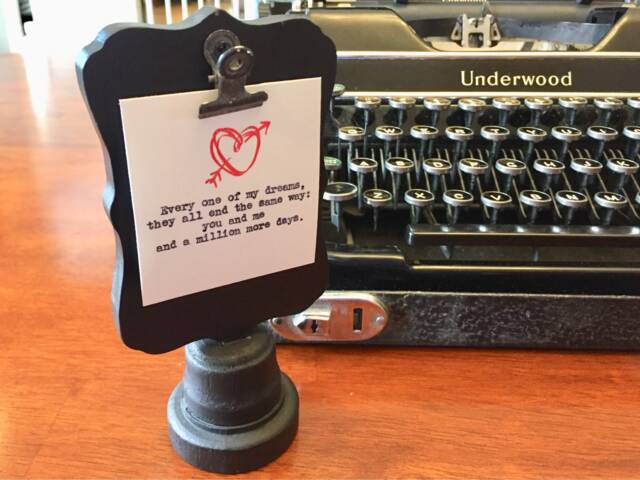 Underwood
Every one of my dreams,
they all end the same way:
you and me
and a million more days.